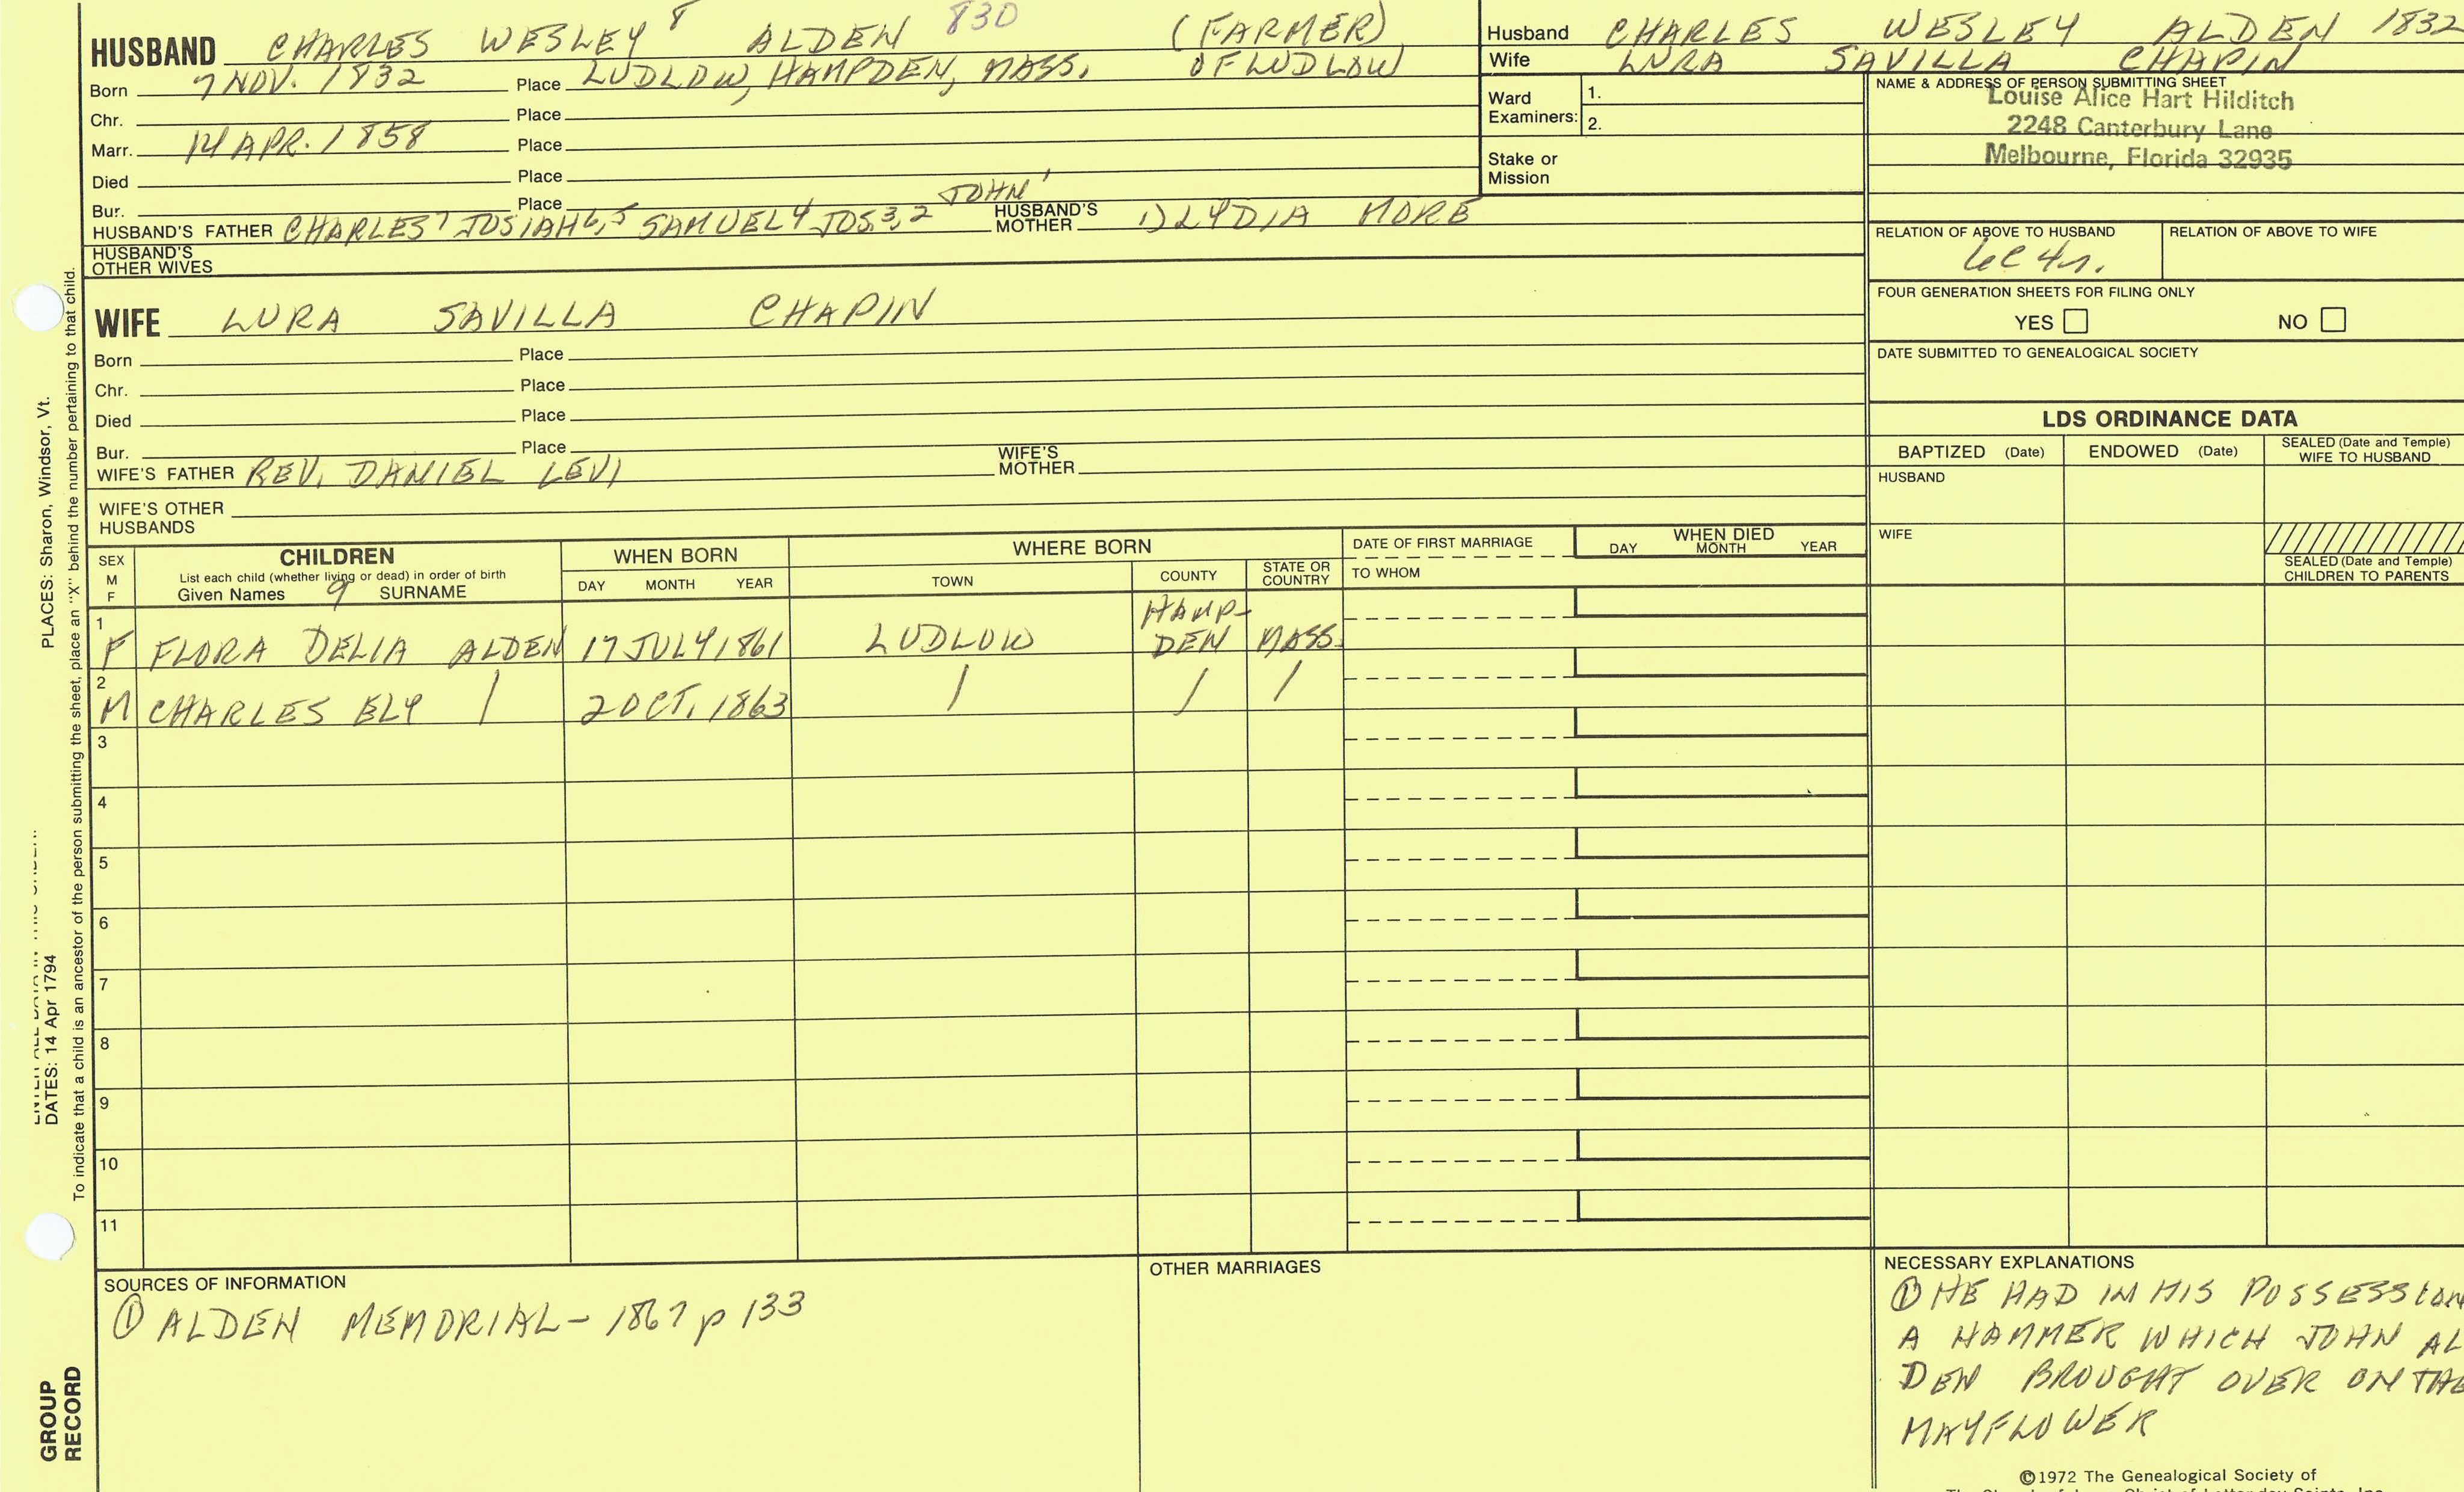 HUSBAND CHARLES WESLEY 8 ALDEN 830 (FARMER)
Born 7 NOV. 1832 Place LUDLOW, HAMPDEN, MASS. OF LUDLOW
Chr. Place
Marr. 14 APR. 1858 Place
Died Place
Bur. Place
HUSBAND'S FATHER CHARLES 7 JOSIAH 6,5 SAMUEL 4 JOS 3,2 JOHN 1 HUSBAND'S MOTHER 1) LYDIA MORE
HUSBAND'S
OTHER WIVES
WIFE LURA SAVILLA CHAPIN
Born Place
Chr. Place
Died Place
Bur. Place
WIFE'S FATHER REV. DANIEL LEVI WIFE'S MOTHER
WIFE'S OTHER
HUSBANDS
Husband CHARLES WESLEY ALDEN 1832
Wife LURA SAVILLA CHAPIN
Ward
Examiners: 1.
2.
Stake or
Mission
NAME & ADDRESS OF PERSON SUBMITTING SHEET
Louise Alice Hart Hilditch
2248 Canterbury Lane
Melbourne, Florida 32935
RELATION OF ABOVE TO HUSBAND RELATION OF ABOVE TO WIFE
FOUR GENERATION SHEETS FOR FILING ONLY
YES NO
DATE SUBMITTED TO GENEALOGICAL SOCIETY
LDS ORDINANCE DATA
BAPTIZED (Date) ENDOWED (Date) SEALED (Date and Temple)
WIFE TO HUSBAND
HUSBAND
WIFE
SEALED (Date and Temple)
CHILDREN TO PARENTS
SEX
M
F
CHILDREN
List each child (whether living or dead) in order of birth
Given Names 9 SURNAME
WHEN BORN
DAY MONTH YEAR
WHERE BORN
TOWN COUNTY STATE OR COUNTRY
DATE OF FIRST MARRIAGE
TO WHOM
WHEN DIED
DAY MONTH YEAR
1 F FLORA DELIA ALDEN 17 JULY 1861 LUDLOW HAMP-DEN MASS.
2 M CHARLES ELY / 2 OCT. 1863 / / /
3
4
5
6
7
8
9
10
11
SOURCES OF INFORMATION
① ALDEN MEMORIAL - 1867 p 133
OTHER MARRIAGES
NECESSARY EXPLANATIONS
① HE HAD IN HIS POSSESSION
A HAMMER WHICH JOHN AL
DEN BROUGHT OVER ON THE
MAYFLOWER
©1972 The Genealogical Society of
PLACES: Sharon, Windsor, Vt.
DATES: 14 Apr 1794
To indicate that a child is an ancestor of the person submitting the sheet, place an "X" behind the number pertaining to that child.
GROUP
RECORD